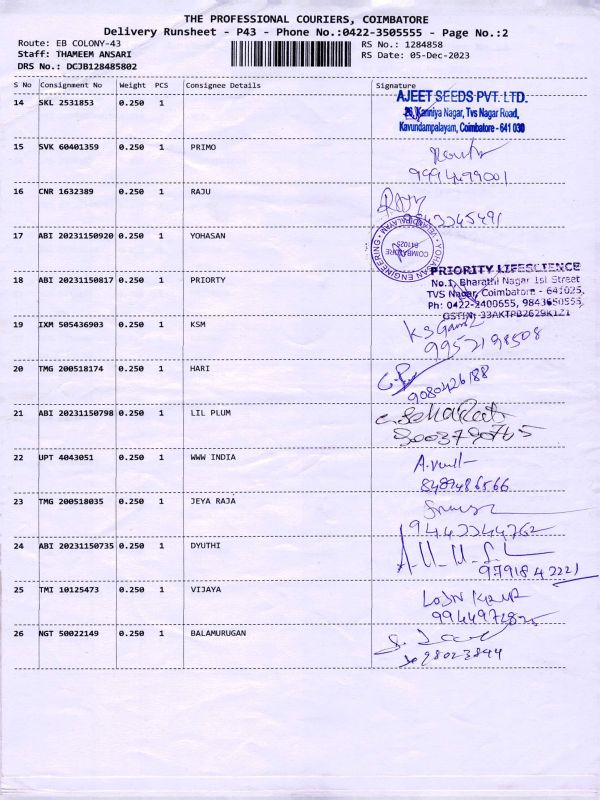 THE PROFESSIONAL COURIERS, COIMBATORE
Delivery Runsheet - P43 - Phone No.:0422-3505555 - Page No.:2
Route: EB COLONY-43 RS No.: 1284858
Staff: THAMEEM ANSARI RS Date: 05-Dec-2023
DRS No.: DCJB128485802
S No Consignment No Weight PCS Consignee Details Signature
14 SKL 2531853 0.250 1
AJEET SEEDS PVT. LTD.
Kanniya Nagar, Tvs Nagar Road,
Kavundampalayam, Coimbatore - 641 030
15 SVK 60401359 0.250 1 PRIMO
9994699001
16 CNR 1632389 0.250 1 RAJU
17 ABI 20231150920 0.250 1 YOHASAN
YOHASAN ENGINEERING
COIMBATORE
641025
18 ABI 20231150817 0.250 1 PRIORTY
PRIORITY LIFESCIENCE
No.1, Bharathi Nagar 1st Street
TVS Nagar, Coimbatore - 641025,
Ph: 0422-2400655, 9843650555,
GSTIN: 33AKTPB2629K1Z1
19 IXM 505436903 0.250 1 KSM
9952198508
20 TMG 200518174 0.250 1 HARI
9080426188
21 ABI 20231150798 0.250 1 LIL PLUM
8003790765
22 UPT 4043051 0.250 1 WWW INDIA
8489486566
23 TMG 200518035 0.250 1 JEYA RAJA
9442244762
24 ABI 20231150735 0.250 1 DYUTHI
9791842221
25 TMI 10125473 0.250 1 VIJAYA
26 NGT 50022149 0.250 1 BALAMURUGAN